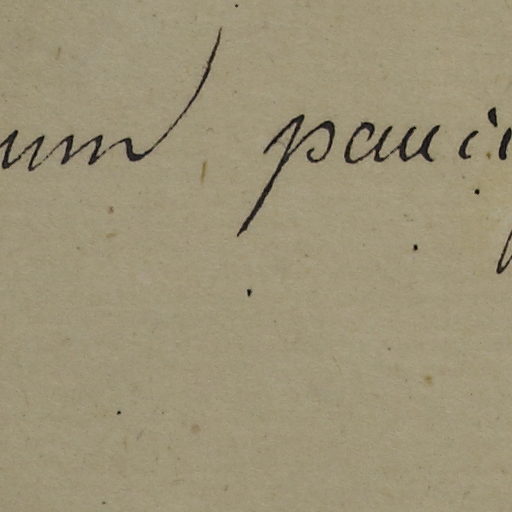 um pauci